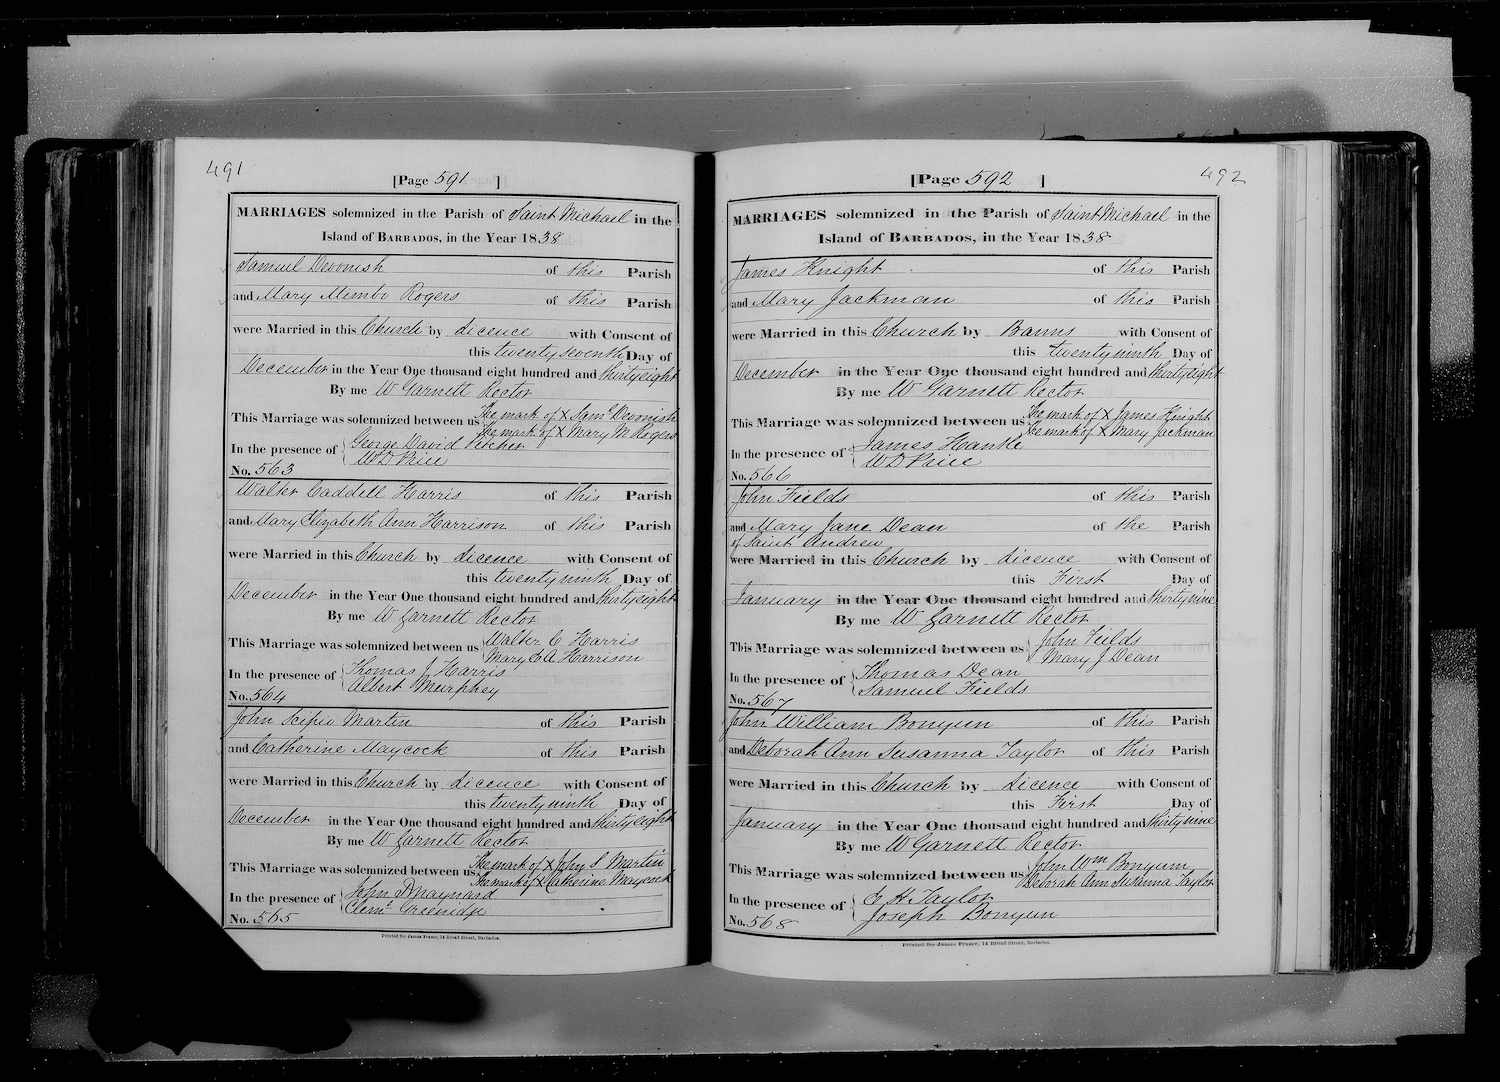 491
[Page 591 ]
MARRIAGES solemnized in the Parish of Saint Michael in the
Island of BARBADOS, in the Year 1838
Samuel Devonish of this Parish
and Mary Mimbo Rogers of this Parish
were Married in this Church by Licence with Consent of
this twenty seventh Day of
December in the Year One thousand eight hundred and thirty eight
By me W Garnett Rector
This Marriage was solemnized between us The mark of X Saml Devonish
The mark of X Mary M Rogers
In the presence of George David Pilcher
W D Price
No. 563
Walter Caddell Harris of this Parish
and Mary Elizabeth Ann Harrison of this Parish
were Married in this Church by Licence with Consent of
this twenty ninth Day of
December in the Year One thousand eight hundred and thirty eight
By me W Garnett Rector
This Marriage was solemnized between us Walter C Harris
Mary E A Harrison
In the presence of Thomas J Harris
Albert Murphey
No. 564
John Scipio Martin of this Parish
and Catherine Maycock of this Parish
were Married in this Church by Licence with Consent of
this twenty ninth Day of
December in the Year One thousand eight hundred and thirty eight
By me W Garnett Rector
This Marriage was solemnized between us The mark of X John S Martin
The mark of X Catherine Maycock
In the presence of John Maynard
Clemt Greenidge
No. 565
Printed by James Fraser, 14 Broad Street, Barbados.
492
[Page 592 ]
MARRIAGES solemnized in the Parish of Saint Michael in the
Island of BARBADOS, in the Year 1838
James Knight of this Parish
and Mary Jackman of this Parish
were Married in this Church by Banns with Consent of
this twenty ninth Day of
December in the Year One thousand eight hundred and thirty eight
By me W Garnett Rector
This Marriage was solemnized between us The mark of X James Knight
The mark of X Mary Jackman
In the presence of James Hankle
W D Price
No. 566
John Fields of this Parish
and Mary Jane Dean of the Parish
of Saint Andrew
were Married in this Church by Licence with Consent of
this First Day of
January in the Year One thousand eight hundred and thirty nine
By me W Garnett Rector
This Marriage was solemnized between us John Fields
Mary J Dean
In the presence of Thomas Dean
Samuel Fields
No. 567
John William Bonyun of this Parish
and Deborah Ann Susanna Taylor of this Parish
were Married in this Church by Licence with Consent of
this First Day of
January in the Year One thousand eight hundred and thirty nine
By me W Garnett Rector
This Marriage was solemnized between us John Wm Bonyun
Deborah Ann Susanna Taylor
In the presence of E H Taylor
Joseph Bonyun
No. 568
Printed by James Fraser, 14 Broad Street, Barbados.